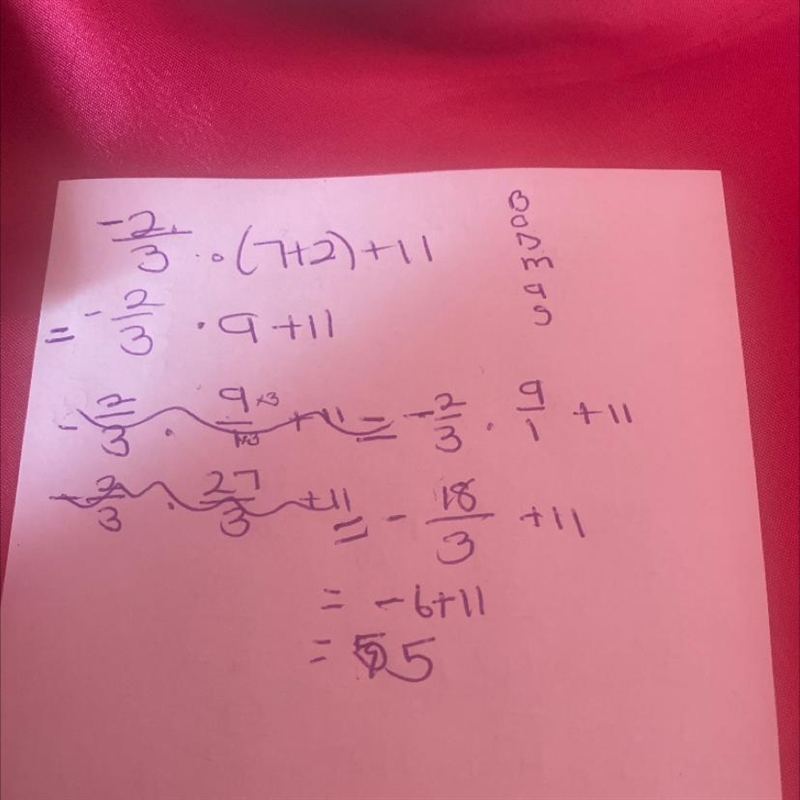 -2/3 · (7+2) + 11
= -2/3 · 9 + 11
-2/3 · 9×3/1×3 + 11 = -2/3 · 9/1 + 11
-2/3 · 27/3 + 11 = -18/3 + 11
= -6+11
= 5